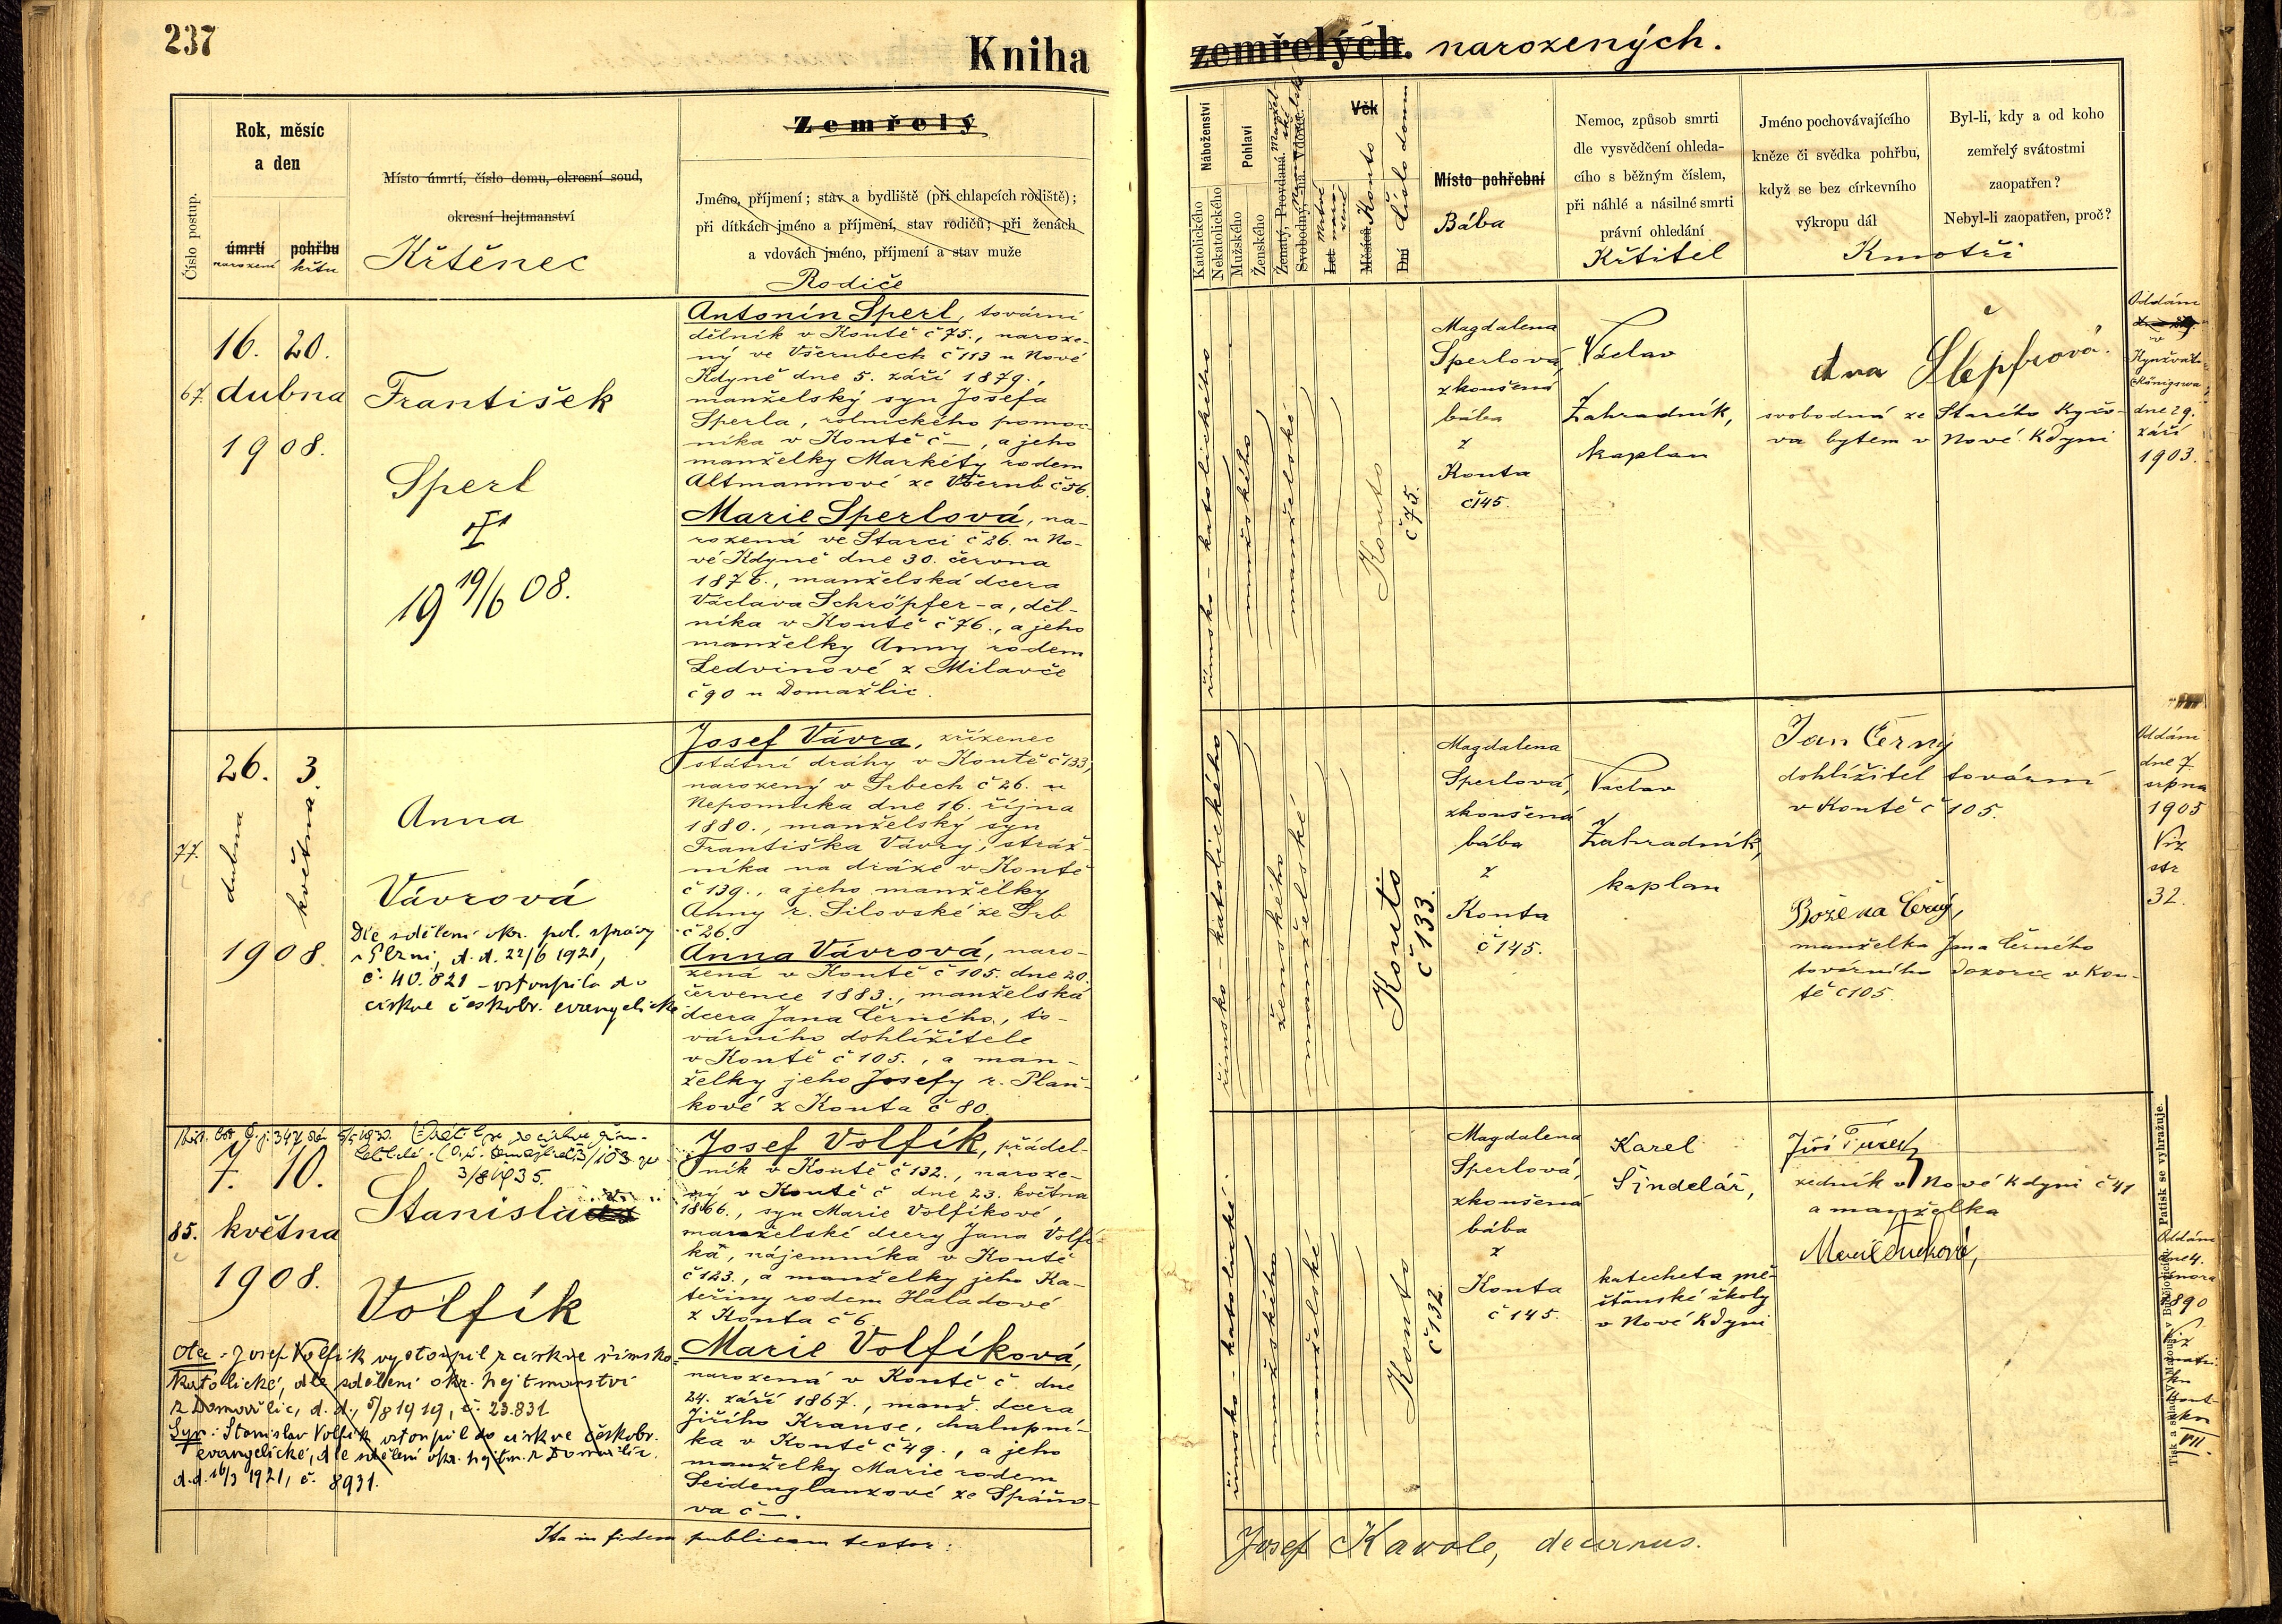 237
Kniha
zemřelých. narozených.
Číslo postup.
Rok, měsíc
a den
úmrtí pohřbu
narození křtu
Místo úmrtí, číslo domu, okresní soud,
okresní hejtmanství
Křtěnec
Zemřelý
Jméno, příjmení; stav a bydliště (při chlapcích rodiště);
při dítkách jméno a příjmení, stav rodičů; při ženách
a vdovách jméno, příjmení a stav muže
Rodiče
67.
16. 20.
dubna
1908.
František
Sperl
19 19/6 08.
Antonín Sperl, tovární
dělník v Kontě č 75., naroze-
ný ve Všerubech č 113 u Nové
Kdyně dne 5. září 1879.,
manželský syn Josefa
Sperla, rolnického pomoc-
níka v Kontě č —, a jeho
manželky Markéty rodem
Altmannové ze Všerub č 56.
Marie Sperlová, na-
rozená ve Starci č 26. u No-
vé Kdyně dne 30. června
1876., manželská dcera
Václava Schröpfer-a, děl-
níka v Kontě č 76., a jeho
manželky Anny rodem
Ledvinové z Milavče
č 90 u Domažlic.
77.
26. 3.
dubna května
1908.
Anna
Vávrová
Dle sdělení okr. pol. správy
v Plzni, d. d. 22/6 1921,
č. 40.821 – vstoupila do
církve českobr. evangelické
Josef Vávra, zřízenec
státní dráhy v Kontě č 133,
narozený v Srbech č 26. u
Nepomuka dne 16. října
1880., manželský syn
Františka Vávry, stráž-
níka na dráze v Kontě
č 139., a jeho manželky
Anny r. Silovské ze Srb
č 26.
Anna Vávrová, naro-
zená v Kontě č 105. dne 20.
července 1883., manželská
dcera Jana Černého, to-
várního dohlížitele
v Kontě č 105., a man-
želky jeho Josefy r. Plaň-
kové z Konta č 80.
85.
7. 10.
května
1908.
3/8 1935.
Stanislav
Volfík
Otec: Josef Volfík vystoupil z církve římsko-
katolické, dle sdělení okr. hejtmanství
z Domažlic, d. d., 5/8 1919, č. 23.831
Syn: Stanislav Volfík vstoupil do církve českobr.
evangelické, dle sdělení okr. hejtm. z Domažlic.
d. d. 16/3 1921, č. 8931.
Josef Volfík, přádel-
ník v Kontě č 132., naroze-
ný v Kontě č dne 23. května
1866., syn Marie Volfíkové,
manželské dcery Jana Volfí-
ka, nájemníka v Kontě
č 123., a manželky jeho Ka-
teřiny rodem Haladové
z Konta č 6.
Marie Volfíková,
narozená v Kontě č. dne
24. září 1867., manž. dcera
Jiřího Krause, chalupní-
ka v Kontě č 49., a jeho
manželky Marie rodem
Seidenglanzové ze Spáňo-
va č —.
Ita in fidem publicam testor:
Náboženství
Katolického
Nekatolického
Pohlaví
Mužského
Ženského
Ženatý, Provdaná
Svobodný, -ná Vdova
Manželské
Nemanželské
Mrtvě narozené
Věk
Let
Měsíců
Dní
Konto
Číslo domu
Místo pohřební
Bába
Nemoc, způsob smrti
dle vysvědčení ohleda-
cího s běžným číslem,
při náhlé a násilné smrti
právní ohledání
Křtitel
Jméno pochovávajícího
kněze či svědka pohřbu,
když se bez církevního
výkropu dál
Byl-li, kdy a od koho
zemřelý svátostmi
zaopatřen?
Nebyl-li zaopatřen, proč?
Kmotři
římsko-katolického
mužského
manželské
Konto
č 75.
Magdalena
Sperlová,
zkoušená
bába
z
Konta
č 145.
Václav
Zahradník,
kaplan
svobodná ze Starého Kyčo-
va bytem v Nové Kdyni
Oddáni
v
Kynžvát
Königswa
dne 29.
září
1903.
římsko-katolického
ženského
manželské
Konto
č 133.
Magdalena
Sperlová,
zkoušená
bába
z
Konta
č 145.
Václav
Zahradník,
kaplan
Jan Černý
dohlížitel tovární
v Kontě č 105.
Božena Černý,
manželka Jana Černého
továrního dozorce v Kon-
tě č 105.
Oddáni
dne 7.
srpna
1905
Viz
str
32.
římsko-katolické
mužského
manželské
Konto
č 132.
Magdalena
Sperlová,
zkoušená
bába
z
Konta
č 145.
Karel
Šindelář,
katecheta mě-
šťanské školy
v Nové Kdyni
Jiří Turek
zedník v Nové Kdyni č 41
a manželka
Oddáni
dne 4.
února
1890
Viz
matri-
ku
Kout-
skou
VII.
Patisk se vyhražuje.
Josef Kavale, decanus.